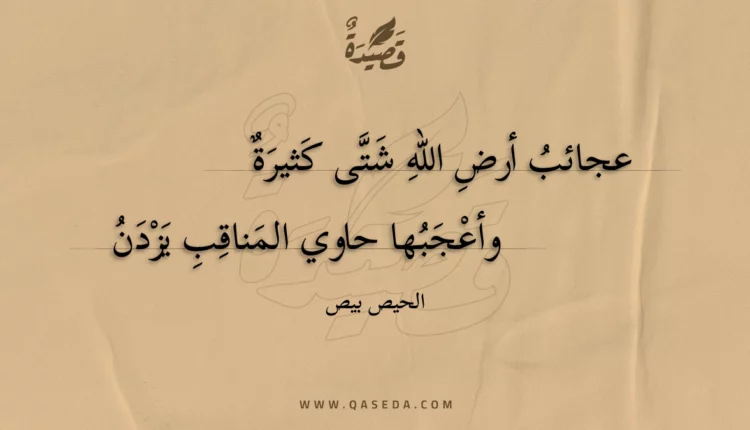 قَصِيْدَةٌ
عجائبُ أرضِ اللهِ شَتَّى كَثيرَةٌ
وأعْجَبُها حاوي المَناقِبِ يَزْدَنُ
الحيص بيص
WWW.QASEDA.COM